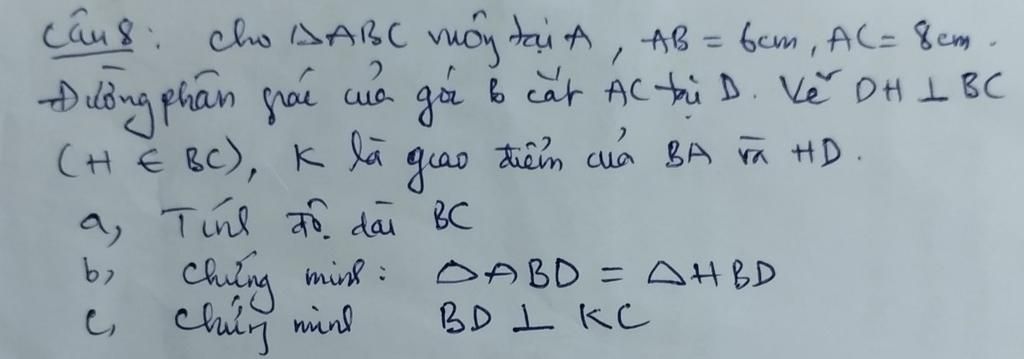 Câu 8: Cho △ABC vuông tại A, AB = 6cm, AC = 8cm.
Đường phân giác của góc B cắt AC tại D. Vẽ DH ⊥ BC
(H ∈ BC), K là giao điểm của BA và HD.
a, Tính độ dài BC
b, Chứng minh: △ABD = △HBD
c, Chứng minh BD ⊥ KC